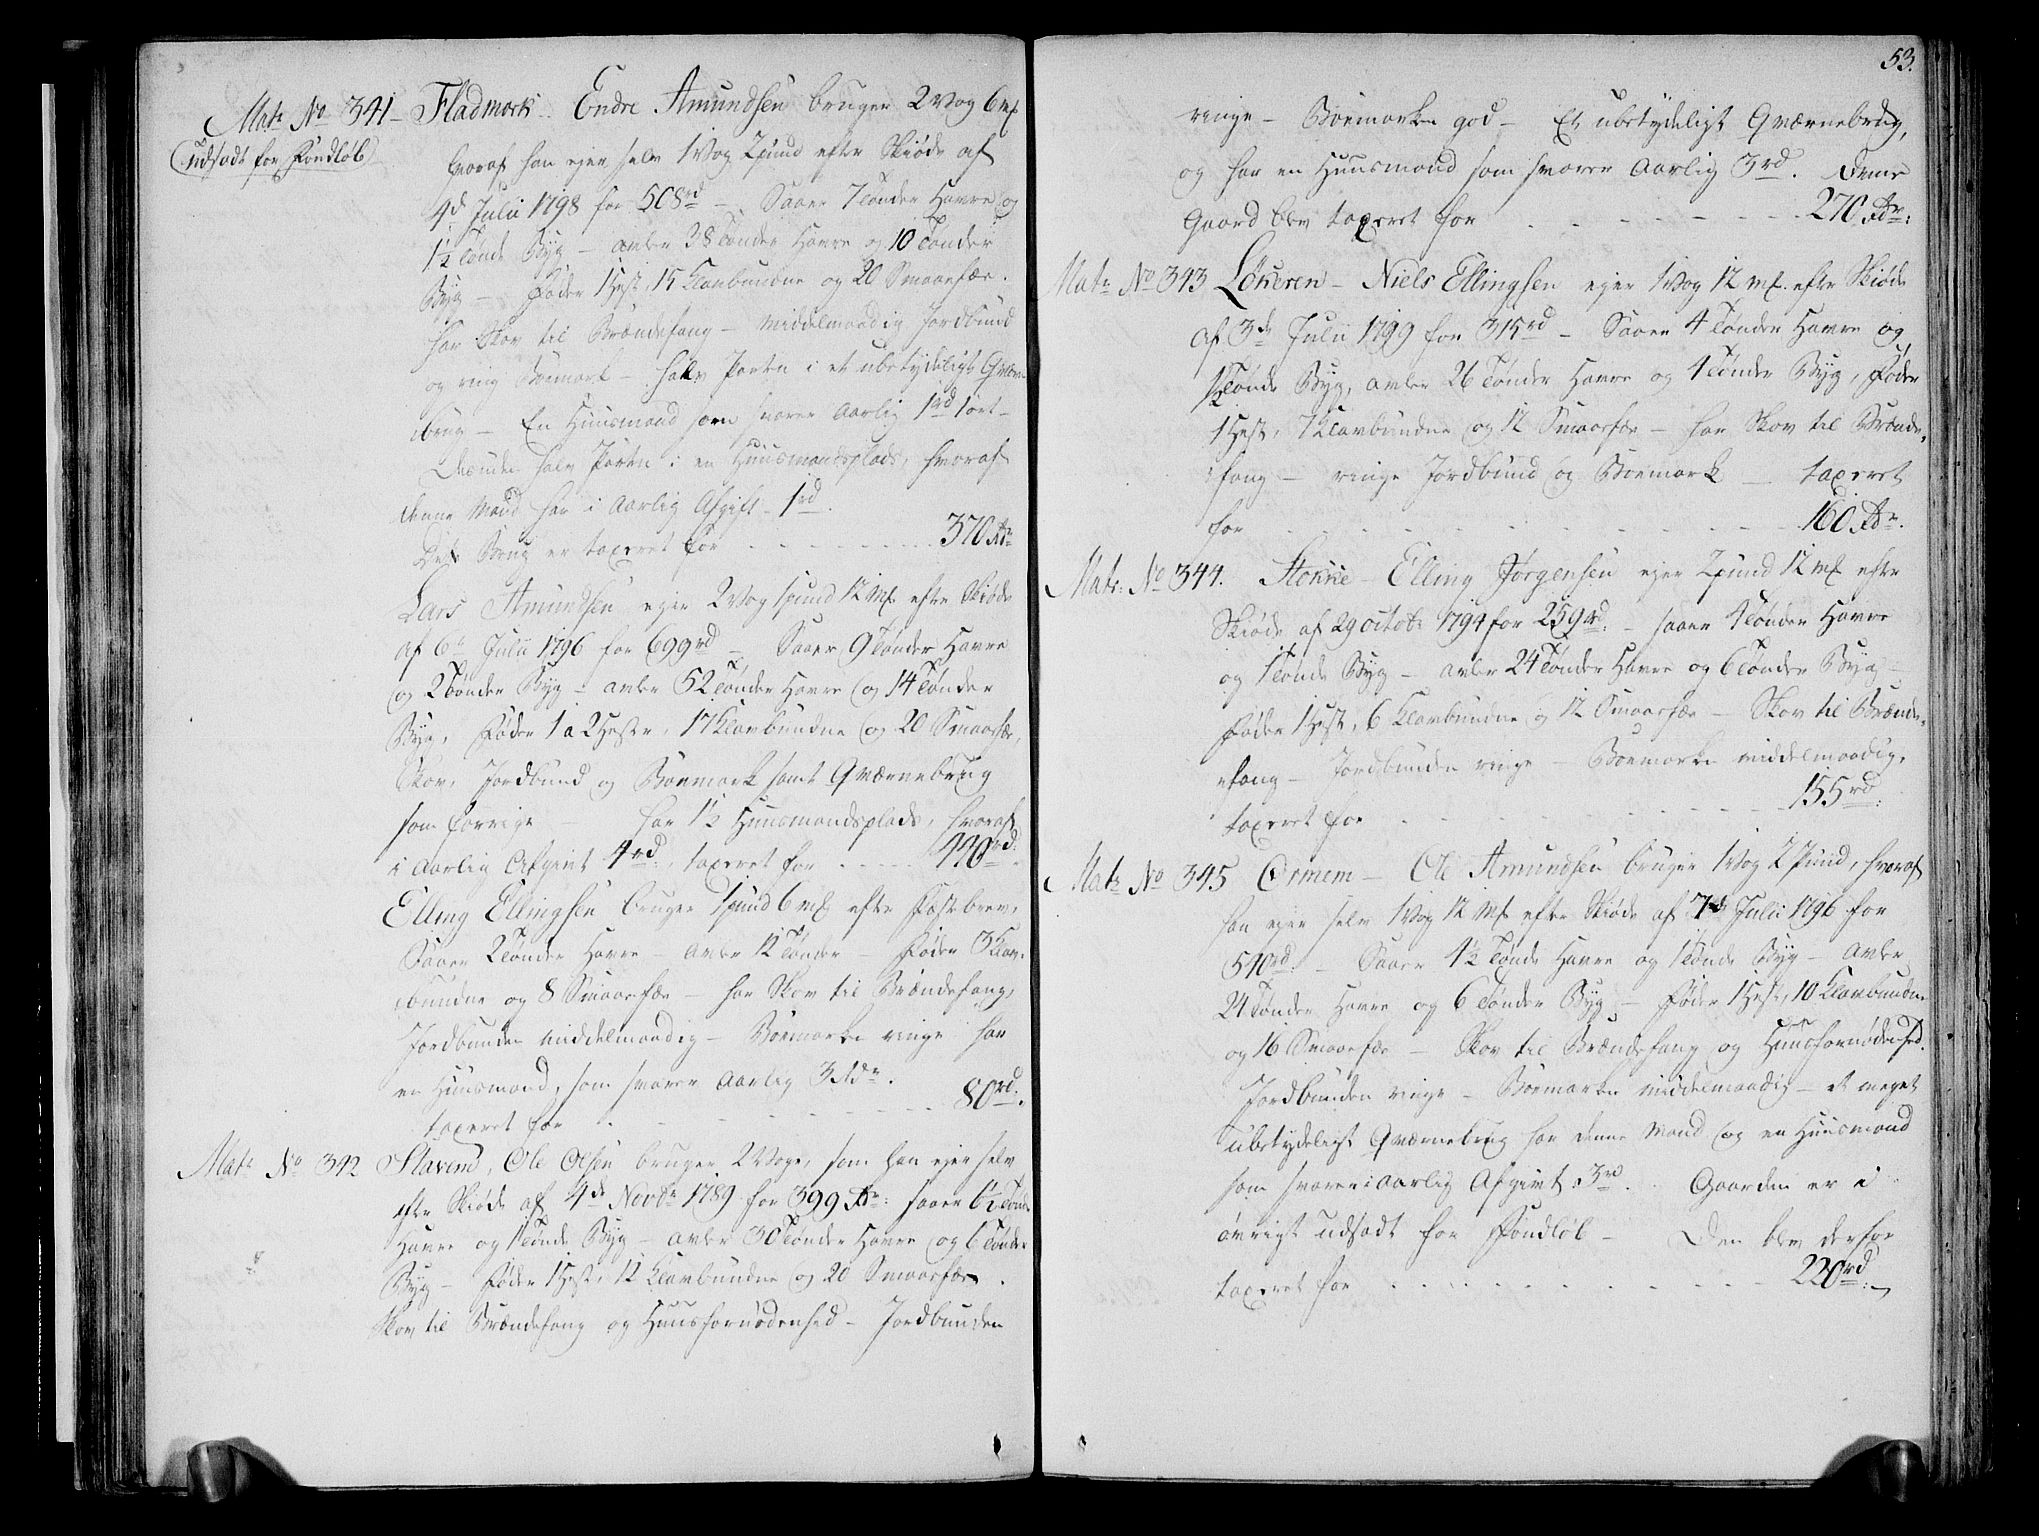 Matr No 341 – Fladmark. Endre Amundsen bruger 2 Vog 6 mk
(udsadt for Fondløb)
hvoraf han ejer selv 1 Vog 2 pund efter Skiøde af
4d Julii 1798 for 508 rd – Saaer 7 Tønder Havre og
1½ Tønde Byg – avler 38 Tønder Havre og 10 Tønder
Byg – Føder 1 Hest, 15 Klavbundne og 20 Smaafæe.
har Skov til Brændefang – middelmaadig Jordbund
og ring Boemark – halv Parten i et ubetydeligt Qværn
brug – En Huusmand som svarer Aarlig 1 rd 1 ort –
halv Parten i en Huusmandsplads, hvoraf
denne Mand har i Aarlig Afgift – 1 rd.
Dets Brug er taxeret for - - - - - - - 370 Rdr
Lars Amundsen ejer 2 Vog 1 pund 12 Mk efter Skiøde
af 6te Julii 1796 for 699 rd – Saaer 9 Tønder Havre
og 2 Tønder Byg – avler 52 Tønder Havre og 14 Tønder
Byg, Føder 1 a 2 Heste, 17 Klavbundne og 20 Smaafæe,
Skov, Jordbund og Boemark samt Qværnebrug
som forrige – har 1½ Huusmandsplads, hvoraf
i Aarlig Afgivt 4 rd, taxeret for - - - 440 rd.
Elling Ellingsen bruger 1 pund 6 mk efter Fæstebrev,
Saaer 2 Tønder Havre – avler 12 Tønder – Føder 3 Klav-
bundne og 8 Smaafæe – har Skov til Brændefang,
Jordbunden middelmaadig – Boemarken ringe har
en Huusmand, som svarer Aarlig 3 Rdr.
taxeret for - - - - - - - 80 rd.
Matr No 342 Slavend, Ole Olsen bruger 2 Voge, som han ejer selv
efter Skiøde af 4de Novbr 1789 for 399 Rdr: saaer 6½ Tønde
Havre og 1 Tønde Byg – avler 30 Tønder Havre og 6 Tønder
Byg – Føder 1 Hest, 12 Klavbundne og 20 Smaafæe.
Skov til Brændefang og Huusfornødenhed – Jordbunden
53.
ringe – Boemarken god – Et ubetydeligt Qværnebrug,
og har en Huusmand som svarer Aarlig 3 rd. Denne
Gaard blev taxeret for - - - - - - - 270 Rdr:
Matr No 343 Løkeren – Niels Ellingsen ejer 1 Vog 12 mk. efter Skiøde
af 3de Julii 1799 for 315 rd – Saaer 4 Tønder Havre og
½ Tønde Byg, avler 26 Tønder Havre og 4 Tønder Byg, Føder
1 Hest, 7 Klavbundne og 12 Smaafæe – har Skov til Brænde-
fang – ringe Jordbund og Boemark – taxeret
for - - - - - - - 160 Rdr.
Matr: No 344. Stokke – Elling Jørgensen ejer 2 pund 12 mk efter
Skiøde af 29 octob: 1794 for 259 rd. – saaer 4 Tønder Havre
og 1 Tønde Byg – avler 24 Tønder Havre og 6 Tønder Byg –
Føder 1 Hest, 6 Klavbundne og 12 Smaafæe – Skov til Brænde-
fang – Jordbunden ringe – Boemarken middelmaadig,
taxeret for - - - - - - - 155 rd.
Matr No 345 Ormem – Ole Amundsen bruger 1 Vog 2 Pund, hvoraf
han ejer selv 1 Vog 12 Mk efter Skiøde af 7de Julii 1796 for
540 rd. – Saaer 4½ Tønde Havre og 1 Tønde Byg – avler
24 Tønder Havre og 6 Tønder Byg – Føder 1 Hest, 10 Klavbundne
og 16 Smaafæe – Skov til Brændefang og Huusfornødenhed.
Jordbunden ringe – Boemarken middelmaadig – et meget
ubetydeligt Qværnebrug har denne Mand og en Huusmand
som svarer i Aarlig Afgivt 3 rd. Gaarden er i
øvrigt udsadt for Fondløb – Den blev derfor
taxeret for - - - - - - - 220 rd.